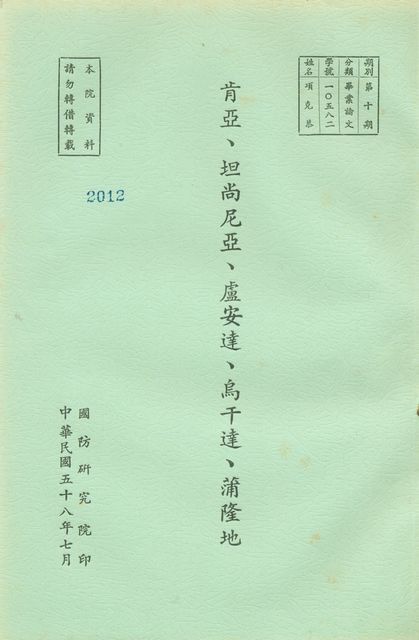 期別 第十期
分類 畢業論文
學號 一〇五八二
姓名 項克恭
肯亞、坦尚尼亞、盧安達、烏干達、蒲隆地
本院資料
請勿轉借轉載
2012
國防研究院印
中華民國五十八年七月